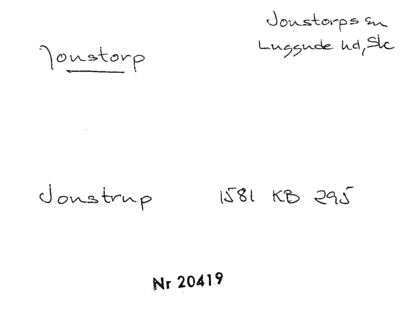 Jonstorps sn
Luggude hd, Sk
Jonstorp
Jonstrup 1581 KB 295
Nr 20419